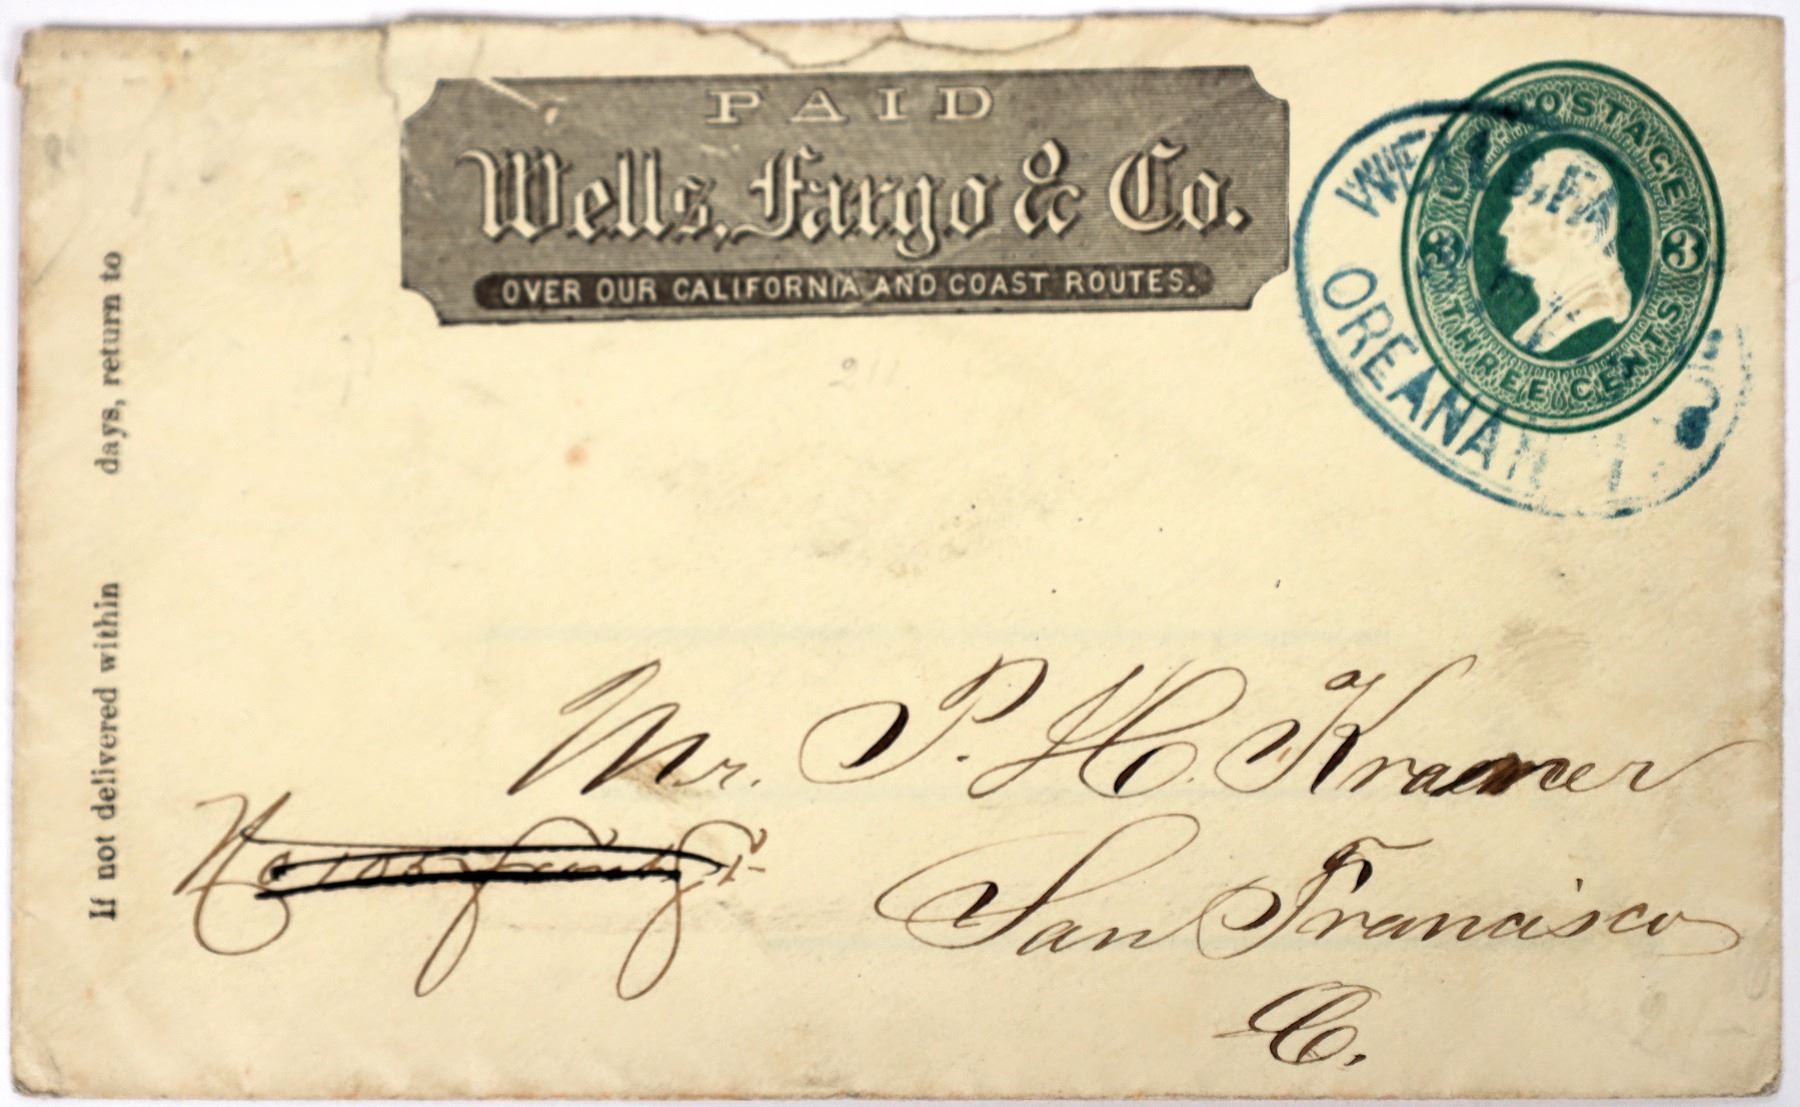 PAID
Wells, Fargo & Co.
OVER OUR CALIFORNIA AND COAST ROUTES.
U.S. POSTAGE
3 3
THREE CENTS
WELLS, FA
OREANA
If not delivered within days, return to
211
Mr. P. H. Kraemer
No 105 Front St
San Francisco
C.